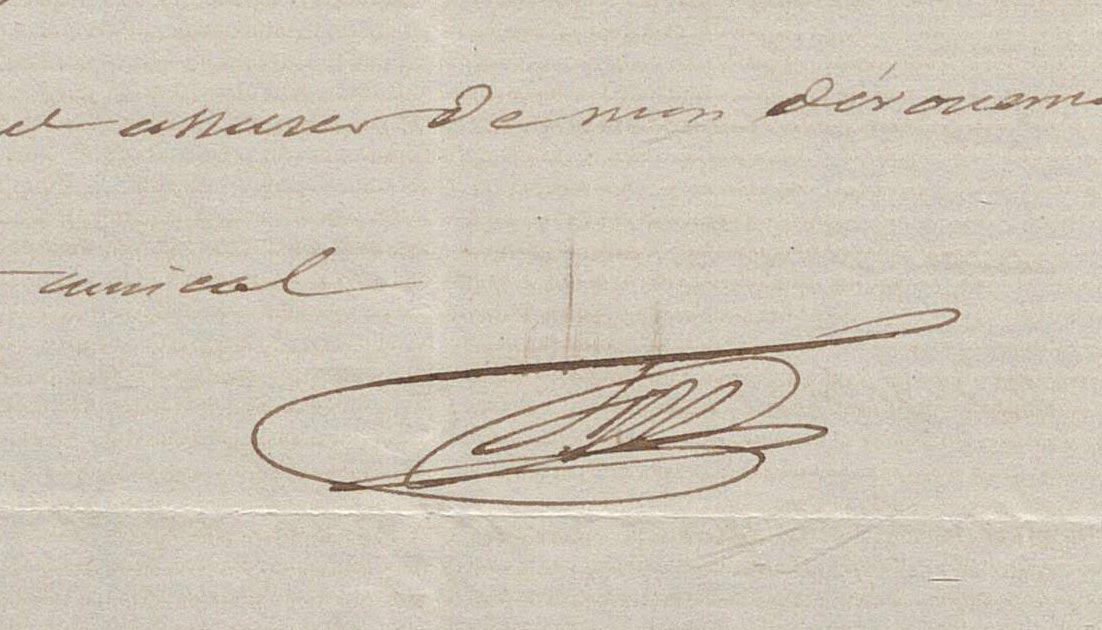 et assurer de mon dévouem
amical